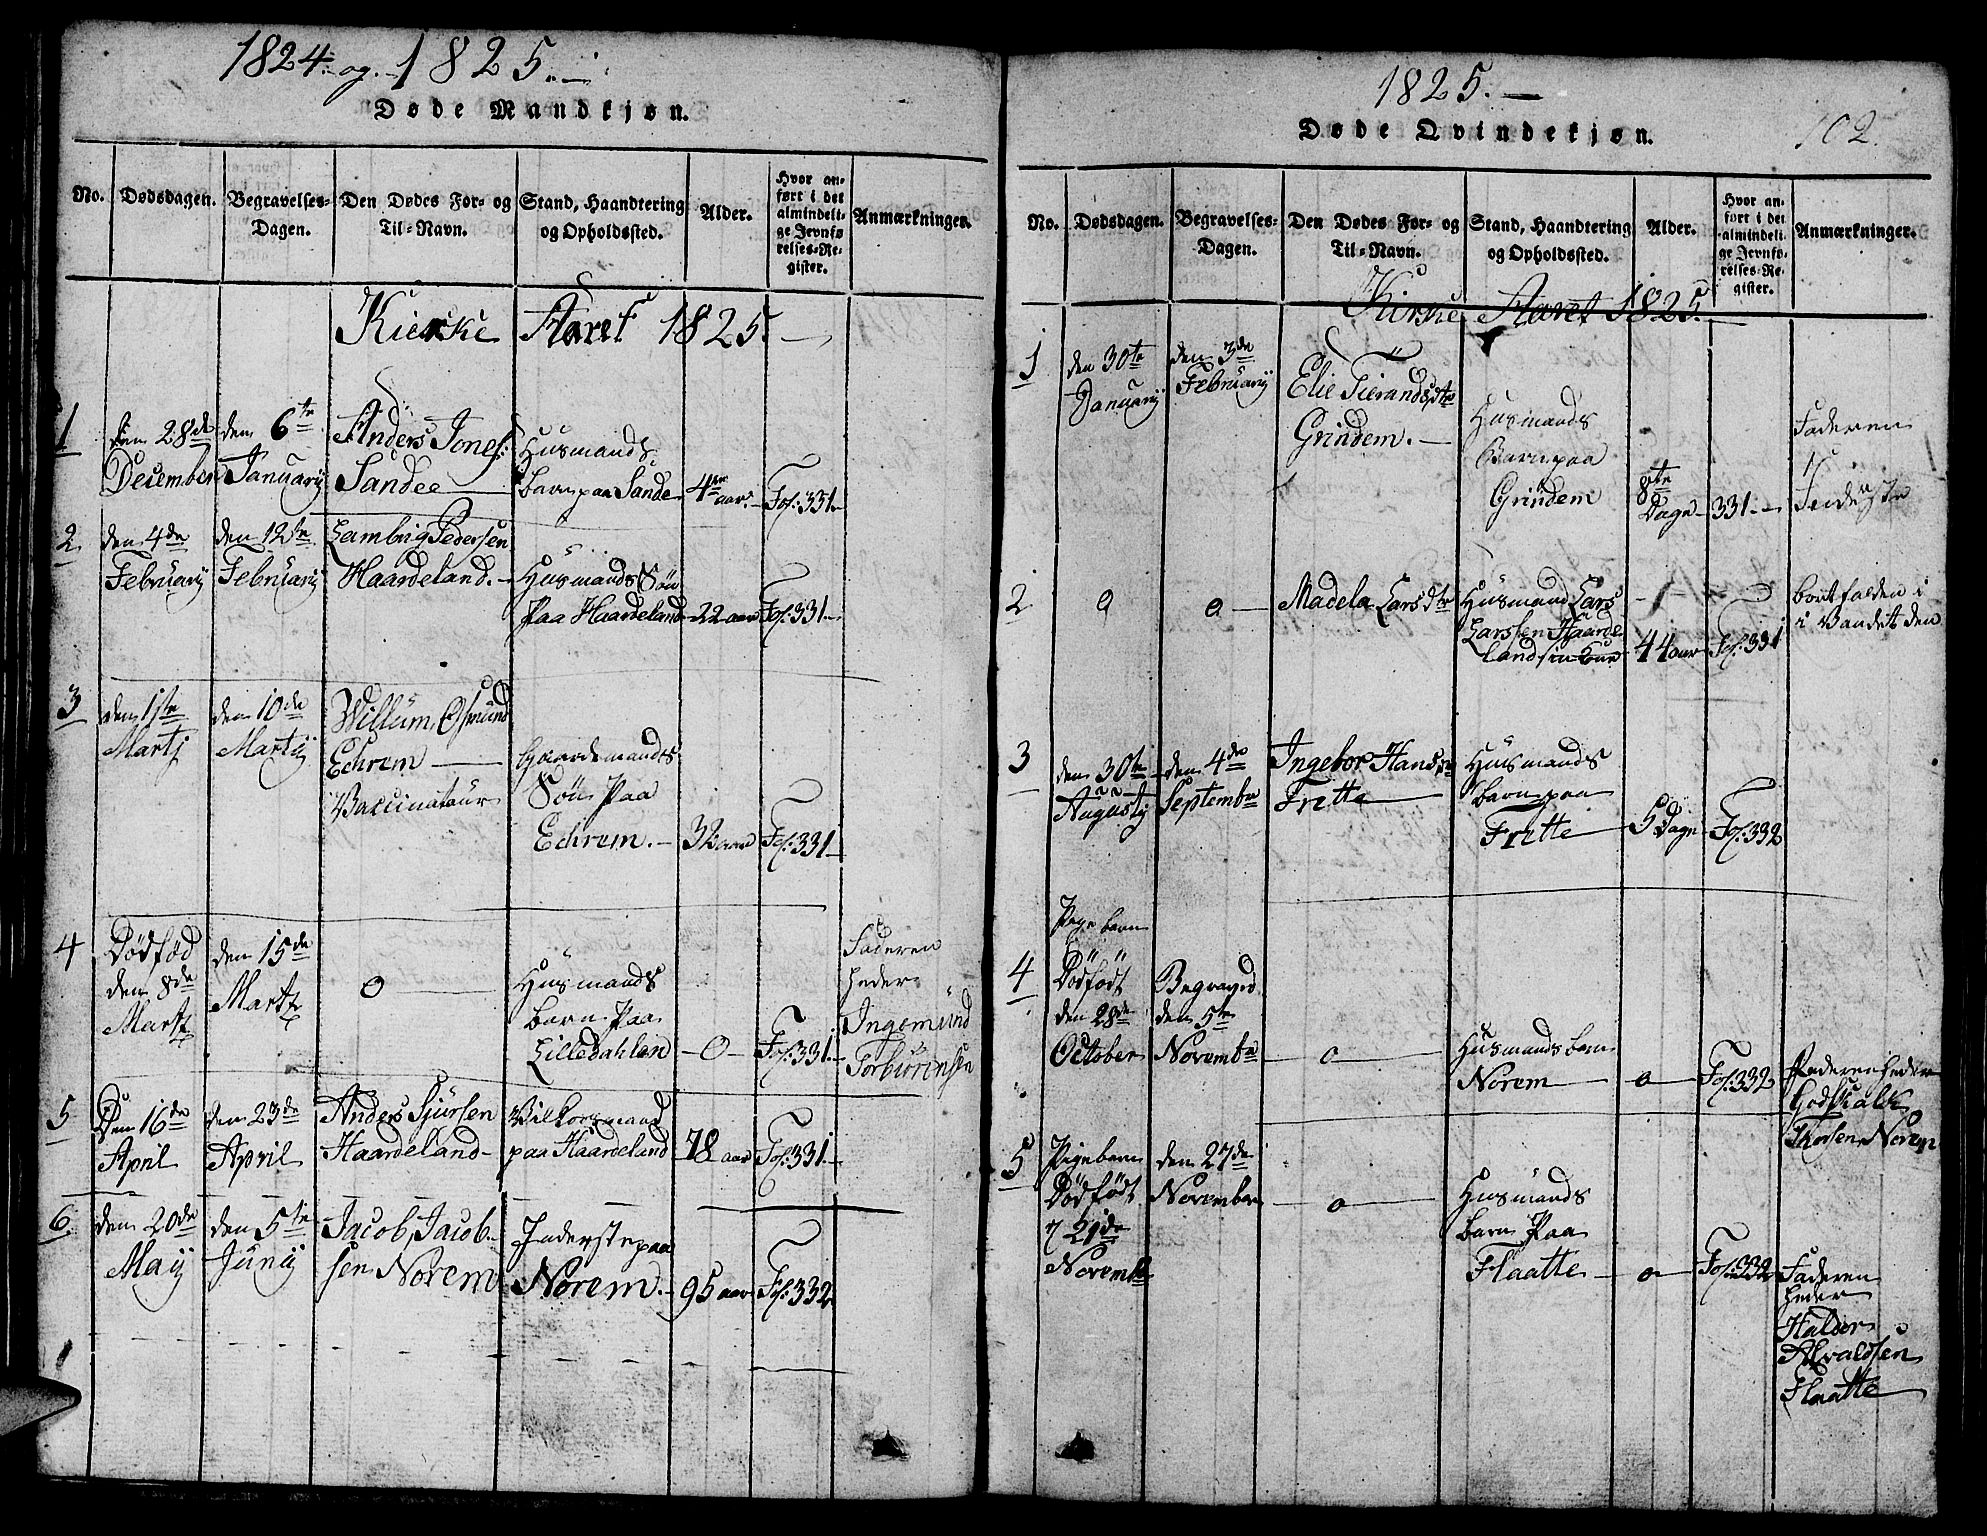 1824 og 1825.
Døde Mandkjøn.
No.
Dødsdagen.
Begravelses-
Dagen.
Den Dødes For- og
Til-Navn.
Stand, Haandtering
og Opholdssted.
Alder.
Hvor an-
ført i det
almindeli-
ge Jevnfø-
relses-Re-
gister.
Anmærkninger.
Kierke Aaret 1825.
1
den 28de
December
den 6te
Januarÿ
Anders Jones:
Sandee
Husmands
barn paa Sande
4re
aar
Fol: 331
2
den 4de
Februarÿ
den 12te
Februarÿ
Lambrig Pedersen
Haardeland.
Huusmands Søn
Paa Haardeland
22 aar
Fol: 331
3
den 1ste
Martj
den 10de
Martij
Willum Osmund
Echrem
Vaccinateur
Gaardemands
Søn Paa
Echrem.
Fol: 331
4
Dødfød
den 8de
Martz
den 15de
Martz
0
Huusmands
barn Paa
Lilledahlen
0
Fol: 331
Faderen
heder
Ingemund
Torbiørensen
5
Den 16de
April
den 23de
April
Anders Sjursen
Haardeland
Vilkorsmand
paa Haardeland
78 aar
Fol: 331
6
den 20de
Maÿ
den 5te
Junÿ
Jacob Jacob-
sen Norem
Inderste paa
Norem.
95 aar
Fol: 332
1825.
102.
Døde Qvindekjøn.
No.
Dødsdagen.
Begravelses-
Dagen.
Den Dødes For- og
Til-Navn.
Stand, Haandtering
og Opholdssted.
Alder.
Hvor an-
ført i det
almindeli-
ge Jevnfø-
relses-Re-
gister.
Anmærkninger.
Kirke Aaret 1825.
1
den 30te
Januarÿ
den 3de
Februarÿ
Elie Tierandsdtr
Grindem.
Husmands
Barn paa
Grindem
8te
Dage
331
Faderen
2
0
0
Madela Larsdtr
Huusmand Lars
Larssen Haarde
land
44 aar
Fol: 331
bortfalden i
i Vandet den
3
den 30te
Augustÿ
den 4de
Septembr
Ingebor Hansdtr
Frette
Huusmands
barn paa
Frette
5 Dage
Fol: 332
4
Pige barn
Dødfødt
den 28de
October
Begraved
den 5te
Novembr
0
Husmands barn
Norem
0
Fol: 332
Faderen heder
Godskalk
Norem
5
Pigebarn
Dødfødt
21de
Novembr
den 27de
November
0
Husmands
barn Paa
Flaatte
0
Fol: 332
Faderen
heder
Haldor
Flaatte